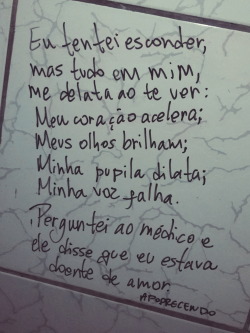 Eu tentei esconder,
mas tudo em mim,
me delata ao te ver:
Meu coração acelera;
Meus olhos brilham;
Minha pupila dilata;
Minha voz falha.
Perguntei ao médico e
ele disse que eu estava
doente de amor.
APODRECENDO